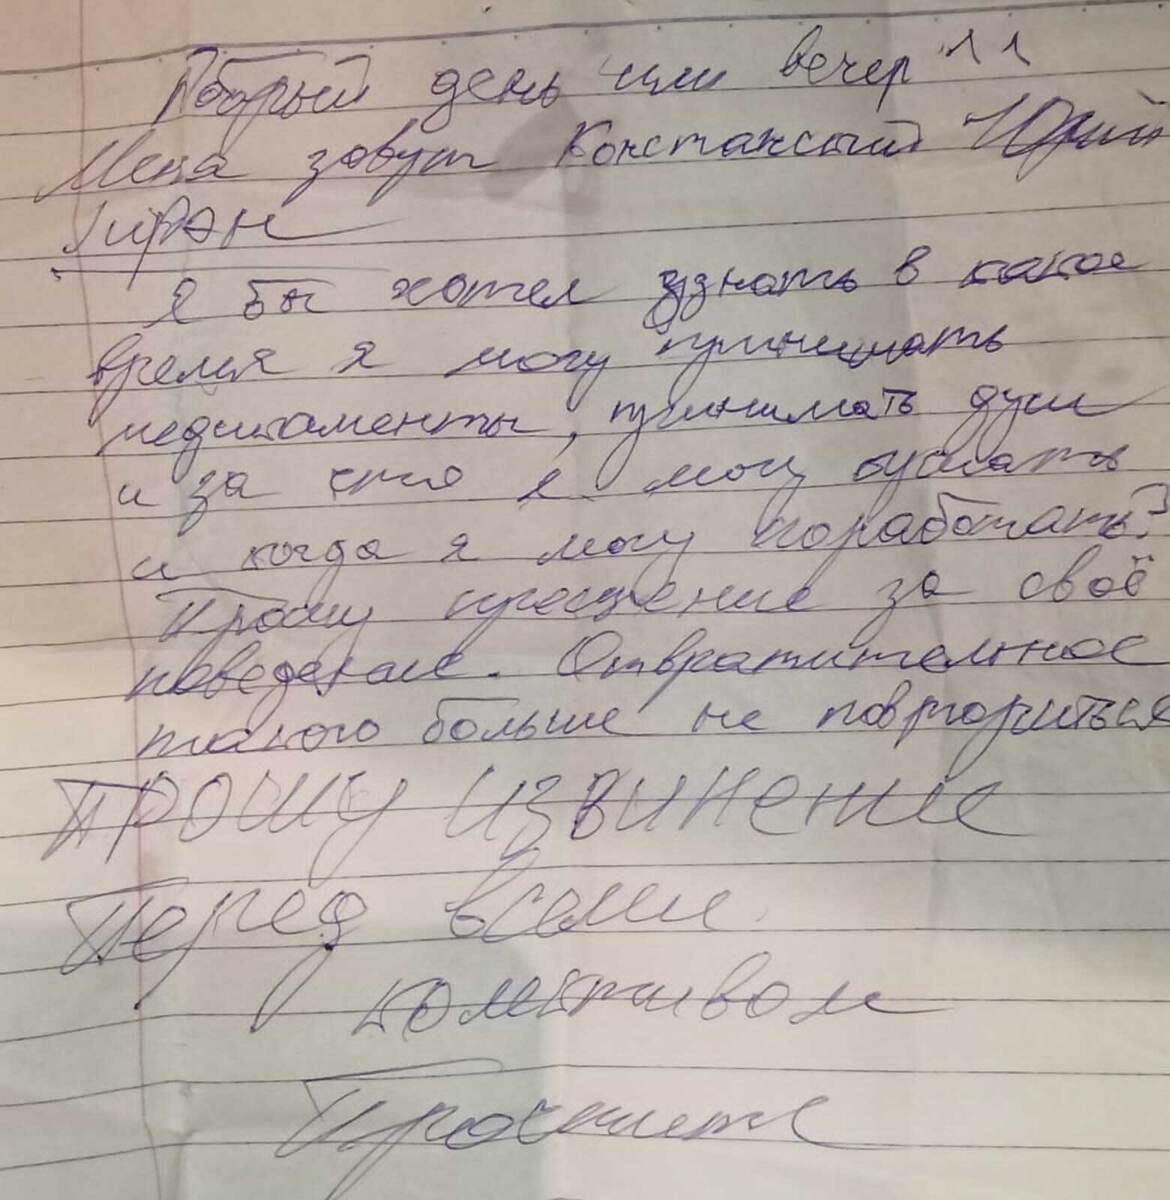 Добрый день или вечер !!
Меня зовут Констансый Юрий
я бы хотел узнать в какое
время я могу принимать
медикаменты, принимать душ
и за что я могу
и когда я могу поработать?
Прошу прощение за своё
поведение. Отвратительное
такого больше не повториться
ПРОШУ ИЗВИНЕНИЕ
Перед всеми
колективом
Простите